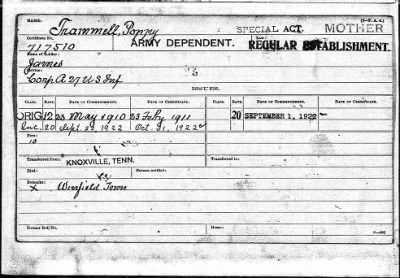 (3-F.A.4)
Trammell, Poppy SPECIAL ACT. MOTHER
Certificate No. Law:
717510 ARMY DEPENDENT. REGULAR ESTABLISHMENT.
Name of Soldier:
James
Service:
Corp. A 27 U S Inf
ISSUES.
CLASS. RATE. DATE OF COMMENCEMENT. DATE OF CERTIFICATE. CLASS. RATE. DATE OF COMMENCEMENT. DATE OF CERTIFICATE.
ORIG 12 23 May 1910 23 Feby 1911 20 SEPTEMBER 1, 1922
Inc. 20 Sept. 22 1922 Oct. 31, 1922
10
Transferred from KNOXVILLE, TENN. Previous notified:
Remarks:
X Winfield Tenn
Former Roll No. Home: